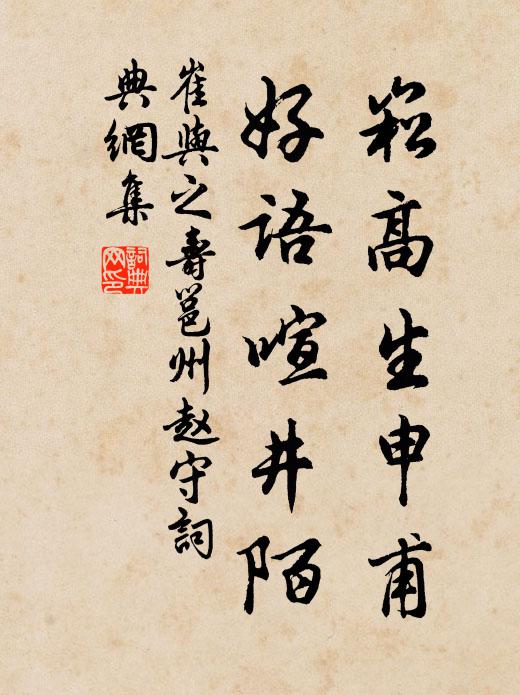 崧高生申甫
好语喧井陌
崔與之壽邕州赵守詞
典網集
詞典網印